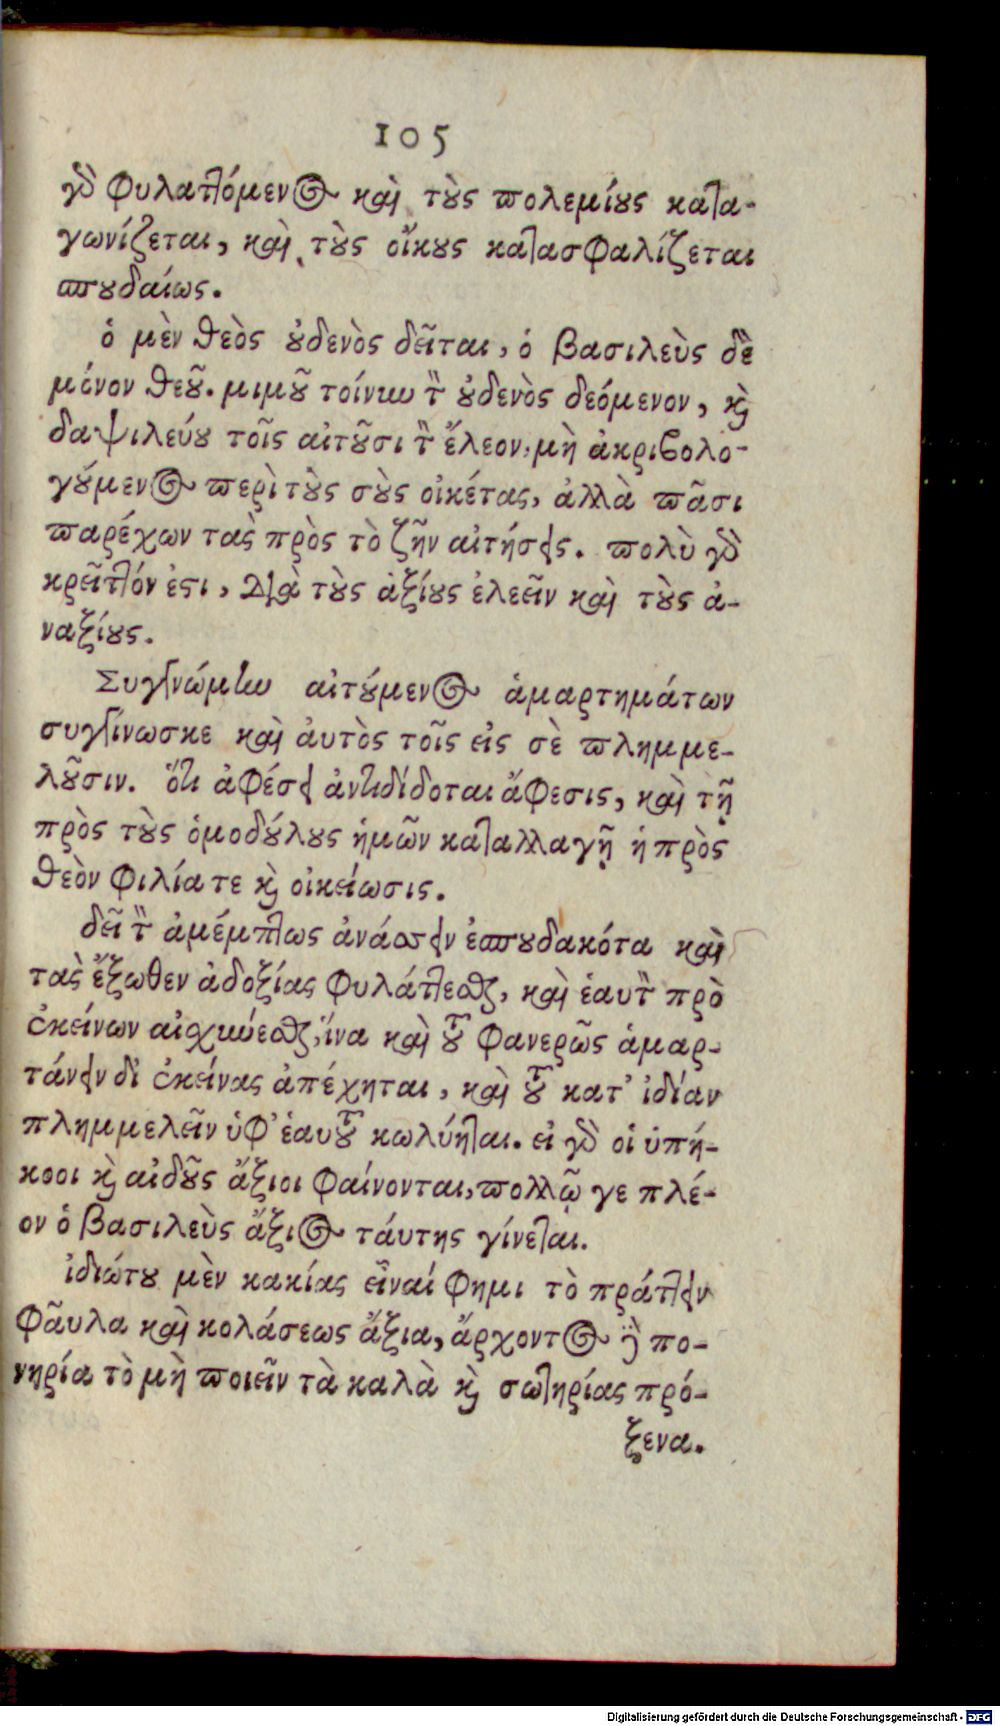 105
γὸ φυλαττόμενος καὶ τοὺς πολεμίους κατα-
γωνίζεται, καὶ τοὺς οἴκους κατασφαλίζεται
σπουδαίως.
ὁ μὲν θεὸς οὐδενὸς δεῖται, ὁ βασιλεὺς δὲ
μόνον θεοῦ. μιμοῦ τοίνυν τὸν οὐδενὸς δεόμενον, καὶ
δαψιλεύου τοῖς αἰτοῦσι τὸν ἔλεον, μὴ ἀκριβολο-
γούμενος περὶ τοὺς σοὺς οἰκέτας, ἀλλὰ πᾶσι
παρέχων τὰς πρὸς τὸ ζῆν αἰτήσεις. πολὺ γὸ
κρεῖττόν ἐστι, διὰ τοὺς ἀξίους ἐλεεῖν καὶ τοὺς ἀ-
ναξίους.
Συγγνώμην αἰτούμενος ἁμαρτημάτων
συγγίνωσκε καὶ ἀυτὸς τοῖς εἰς σὲ πλημμε-
λοῦσιν. ὅτι ἀφέσει ἀντιδίδοται ἄφεσις, καὶ τῇ
πρὸς τοὺς ὁμοδούλους ἡμῶν καταλλαγῇ ἡ πρὸς
θεὸν φιλία τε καὶ οἰκείωσις.
δεῖ τὸν ἀμέμπτως ἀνάσσειν ἐσπουδακότα καὶ
τὰς ἔξωθεν ἀδοξίας φυλάττεσθαι, καὶ ἑαυτὸν πρὸ
ἐκείνων αἰσχύνεσθαι, ἵνα καὶ τοῦ φανερῶς ἁμαρ-
τάνειν δι' ἐκείνας ἀπέχηται, καὶ τοῦ κατ' ἰδίαν
πλημμελεῖν ὑφ' ἑαυτοῦ κωλύηται. εἰ γὸ οἱ ὑπή-
κοοι καὶ αἰδοῦς ἄξιοι φαίνονται, πολλῷ γε πλέ-
ον ὁ βασιλεὺς ἄξιος τάυτης γίνεται.
ἰδιώτου μὲν κακίας εἶναί φημι τὸ πράττειν
φᾶυλα καὶ κολάσεως ἄξια, ἄρχοντος δὲ πο-
νηρία τὸ μὴ ποιεῖν τὰ καλὰ καὶ σωτηρίας πρό-
ξενα.
Digitalisierung gefördert durch die Deutsche Forschungsgemeinschaft - DFG